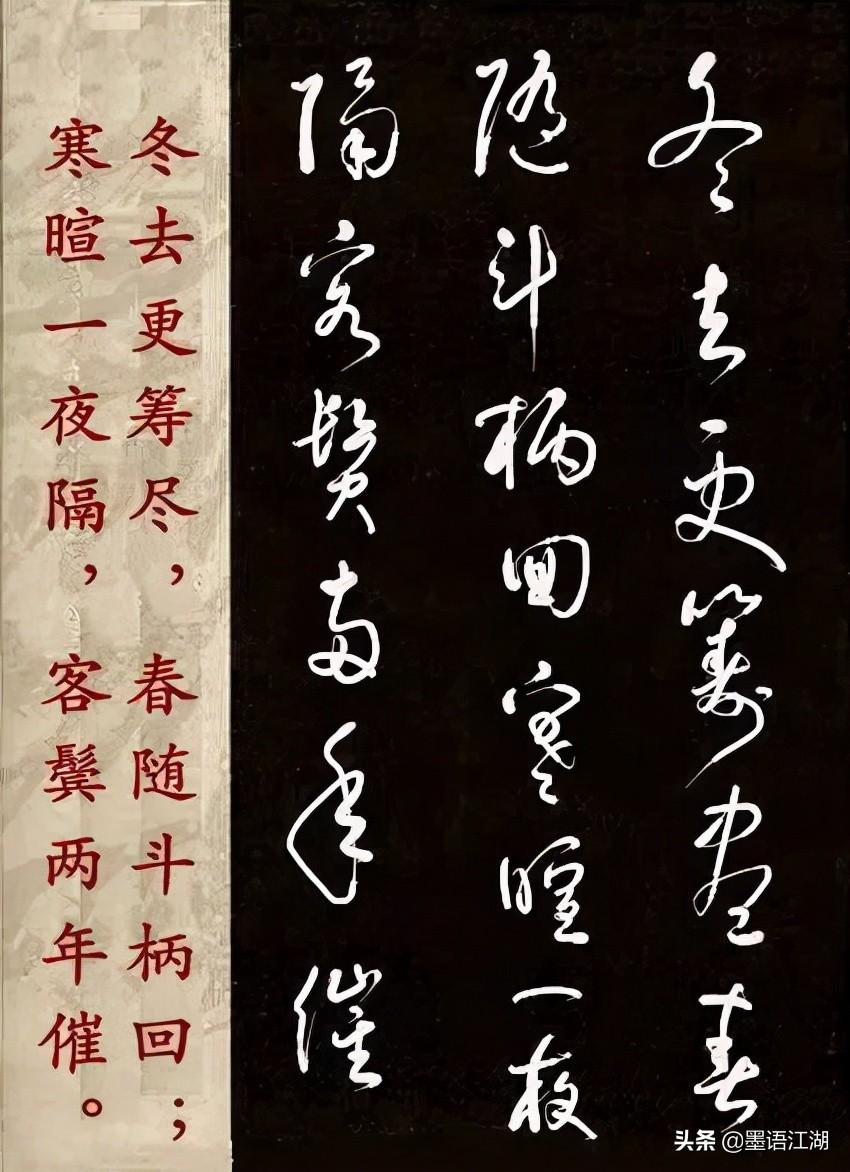 冬去更籌盡春
隨斗柄回寒暄一夜
隔客鬢兩年催
冬去更筹尽，春随斗柄回；
寒暄一夜隔，客鬓两年催。
头条 @墨语江湖